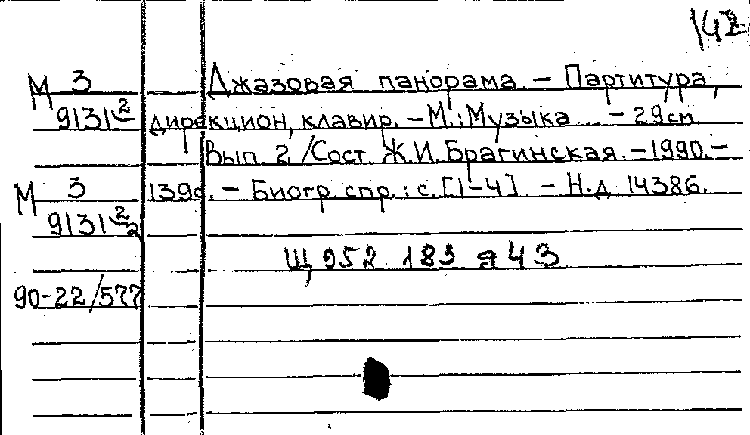 142
М 3 Джазовая панорама. – Партитура,
9131 2 дирекцион, клавир. – М.: Музыка ... – 29 см
Вып. 2 / Сост. Ж.И. Брагинская. – 1990. –
М 3 139 с. – Биогр. спр.: с. [1-4]. – Н.д. 14386.
9131 2 2
Щ 952 183 я 43
90-22/577